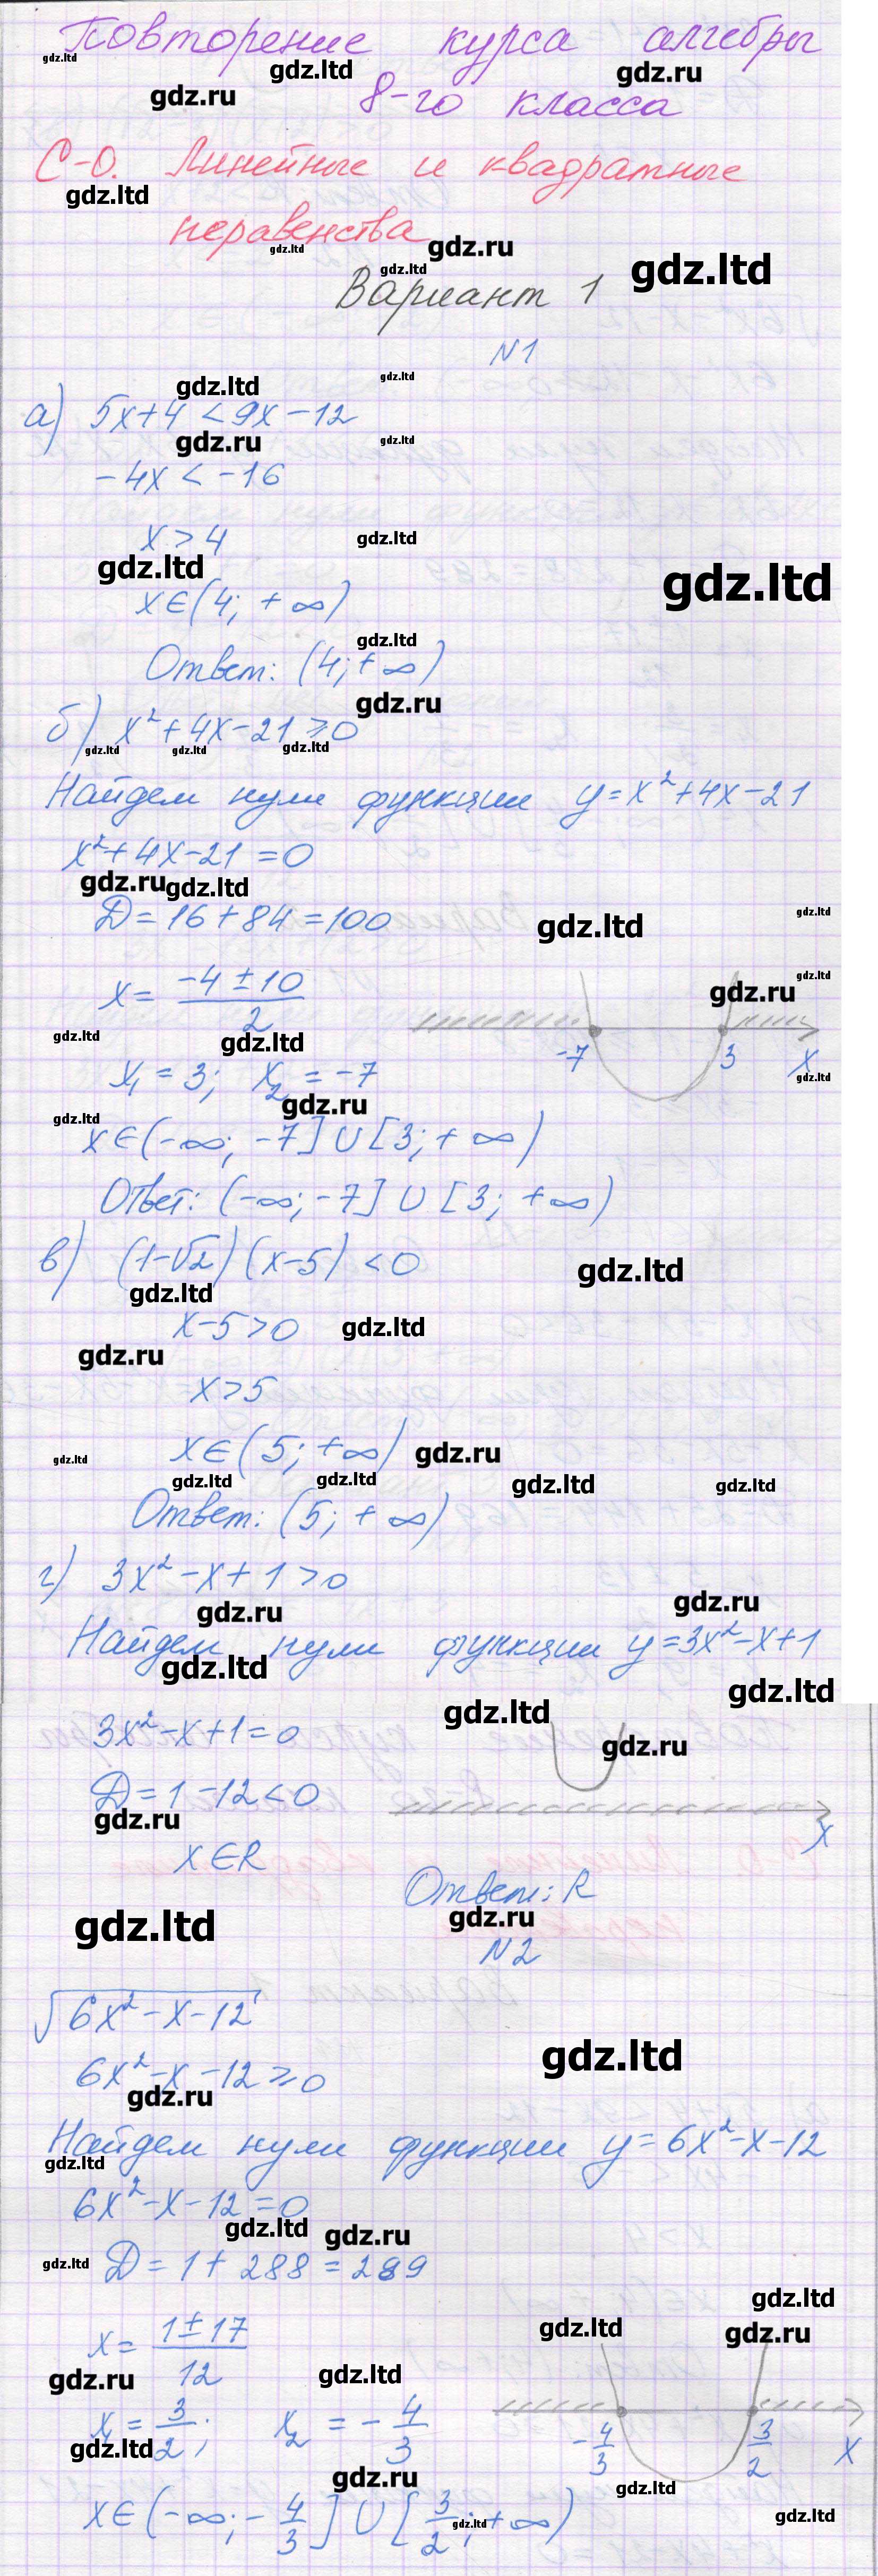 Повторение курса алгебры
8-го класса
С-0. Линейные и квадратные
неравенства
Вариант 1
N1
а) 5x+4 < 9x-12
-4x < -16
x > 4
x∈(4; +∞)
Ответ: (4; +∞)
б) x²+4x-21 ≥ 0
Найдем нули функции y=x²+4x-21
x²+4x-21=0
Д=16+84=100
x= (-4±10)/2
x₁ = 3; x₂ = -7
-7 3 x
x∈(-∞; -7]∪[3; +∞)
Ответ: (-∞; -7]∪[3; +∞)
в) (1-√2)(x-5) < 0
x-5>0
x>5
x∈(5; +∞)
Ответ: (5; +∞)
г) 3x²-x+1>0
Найдем нули функции y=3x²-x+1
3x²-x+1=0
Д=1-12<0
x
x∈R
Ответ: R
N2
√(6x²-x-12)
6x²-x-12≥0
Найдем нули функции y=6x²-x-12
6x²-x-12=0
Д=1+288=289
x= (1±17)/12
x₁ = 3/2; x₂ = -4/3
-4/3 3/2 x
x∈(-∞; -4/3]∪[3/2; +∞)
gdz.ltd
gdz.ru